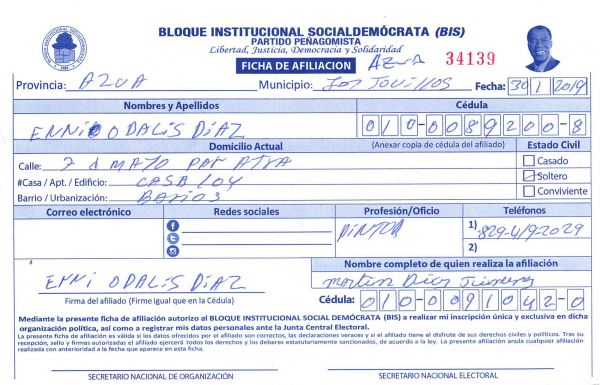 BLOQUE INSTITUCIONAL SOCIALDEMÓCRATA (BIS)
PARTIDO PEÑAGOMISTA
Libertad, Justicia, Democracia y Solidaridad
FICHA DE AFILIACION AZUA 34139
Provincia: AZUA Municipio: Los Jovillos Fecha: 30 1 2019
Nombres y Apellidos Cédula
ENNI ODALIS DIAZ 010-0089200-8
Domicilio Actual (Anexar copia de cédula del afiliado) Estado Civil
Calle: 7 d MAYO Casado
#Casa / Apt. / Edificio: CASA 104 Soltero
Barrio / Urbanización: Conviviente
Correo electrónico Redes sociales Profesión/Oficio Teléfonos
PINTOR 1) 829-419-2029
2)
ENNI ODALIS DIAZ
Nombre completo de quien realiza la afiliación
Martin Diaz Jimenez
Firma del afiliado (Firme igual que en la Cédula) Cédula: 010-0091042-0
Mediante la presente ficha de afiliación autorizo al BLOQUE INSTITUCIONAL SOCIAL DEMÓCRATA (BIS) a realizar mi inscripción única y exclusiva en dicha
organización política, así como a registrar mis datos personales ante la Junta Central Electoral.
La presente ficha de afiliación es válida si los datos ofrecidos por el afiliado son correctos, las declaraciones veraces y si el afiliado tiene el disfrute de sus derechos civiles y políticos. Tras su
recepción, sello y firmas autorizadas el afiliado ejercerá todos los derechos y los deberes estatutariamente sancionados, de acuerdo a la ley. La presente afiliación anula cualquier afiliación
realizada con anterioridad a la fecha que aparece en esta ficha.
SECRETARIO NACIONAL DE ORGANIZACIÓN SECRETARIO NACIONAL ELECTORAL